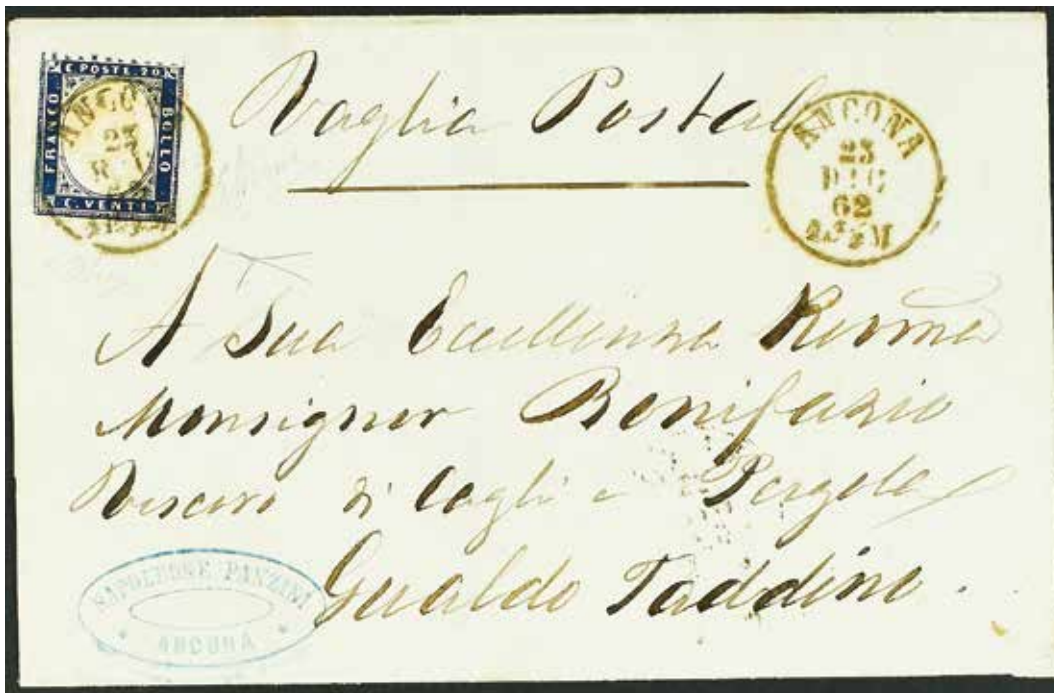 C. POSTE. 20
FRANCO
BOLLO
C. VENTI
ANCO
23
Vaglia Postale
ANCONA
23
DIC
62
A Sua Eccellenza Rev̄ma
Monsignor Bonifazio
Vescovo di Cagli e Pergola
Gualdo Taddino.
NAPOLEONE PANZINI
ANCONA